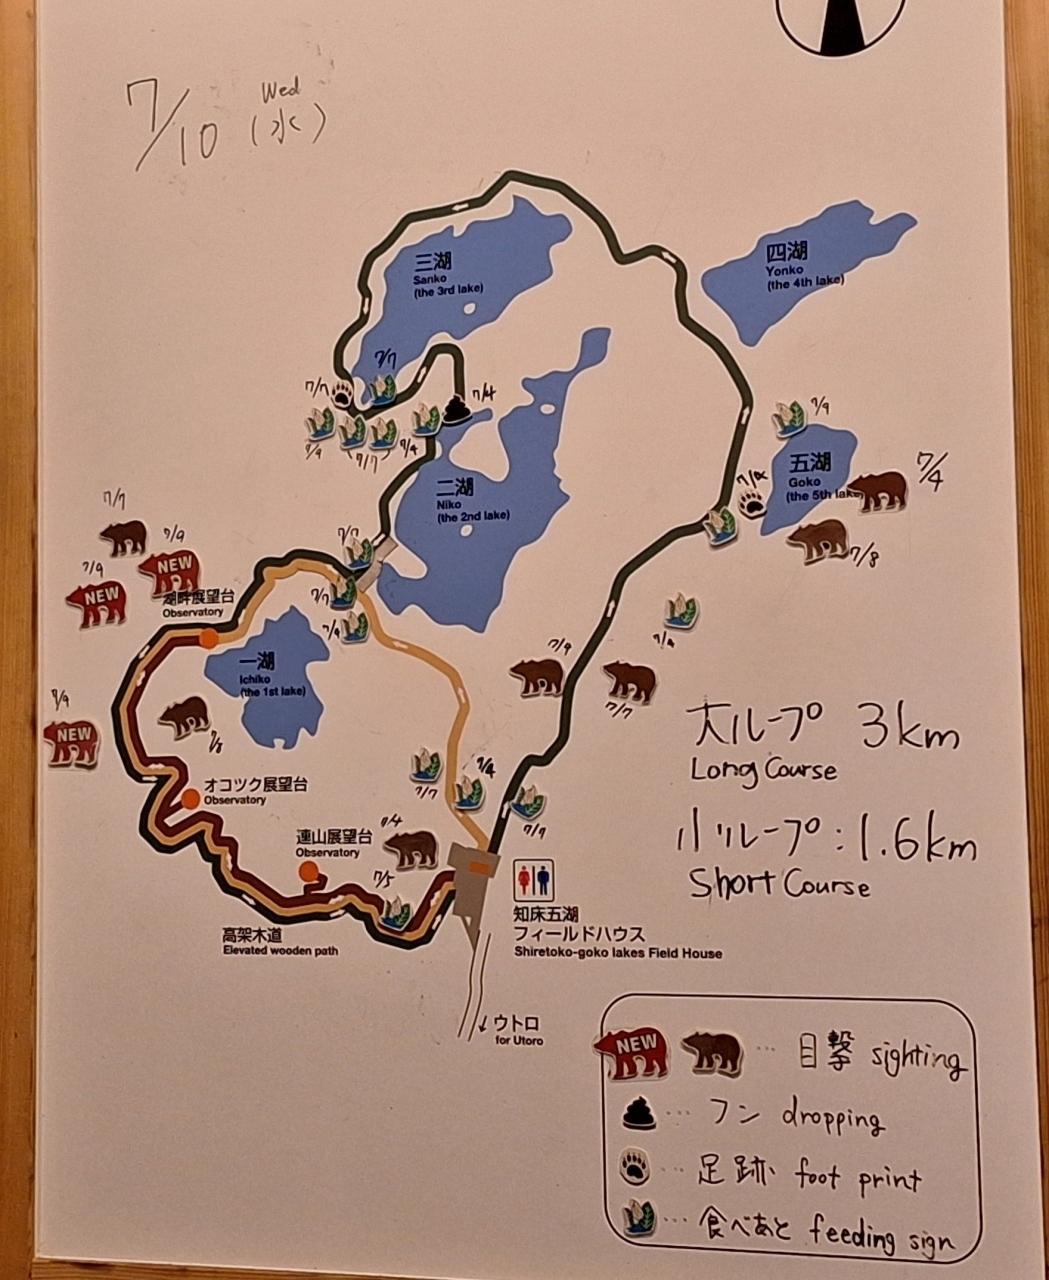 7/10 (水)
Wed
三湖
Sanko
(the 3rd lake)
四湖
Yonko
(the 4th lake)
7/7
7/7
7/4
7/9
7/7
7/4
7/9
二湖
Niko
(the 2nd lake)
五湖
Goko
(the 5th lake)
7/4
7/8
7/7
7/9
NEW
7/9
NEW
湖畔展望台
Observatory
7/7
7/7
一湖
Ichiko
(the 1st lake)
7/9
7/7
7/9
NEW
オコツク展望台
Observatory
7/7
7/7
大ループ 3km
Long Course
小ループ:1.6km
Short Course
連山展望台
Observatory
7/4
7/5
高架木道
Elevated wooden path
知床五湖
フィールドハウス
Shiretoko-goko lakes Field House
ウトロ
for Utoro
NEW … 目撃 sighting
… フン dropping
… 足跡 foot print
… 食べあと feeding sign